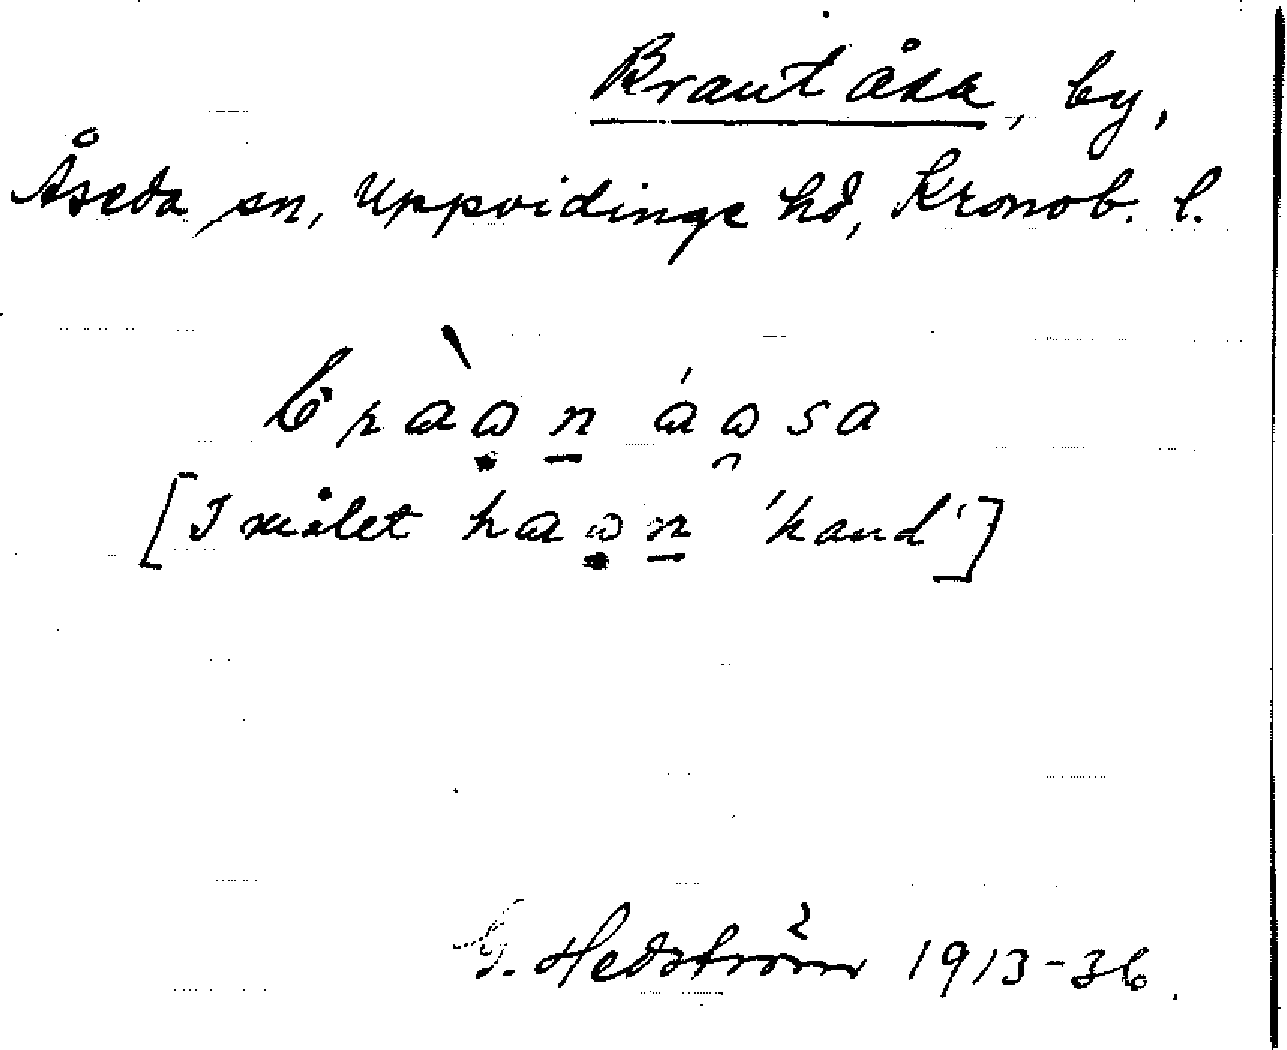 Brantåsa, by,
Åseda sn, Uppvidinge hd, Kronob. l.
bràạn̲ áa̯sa
[I målet haạn̲ 'hand']
G. Hedström 1913-36.